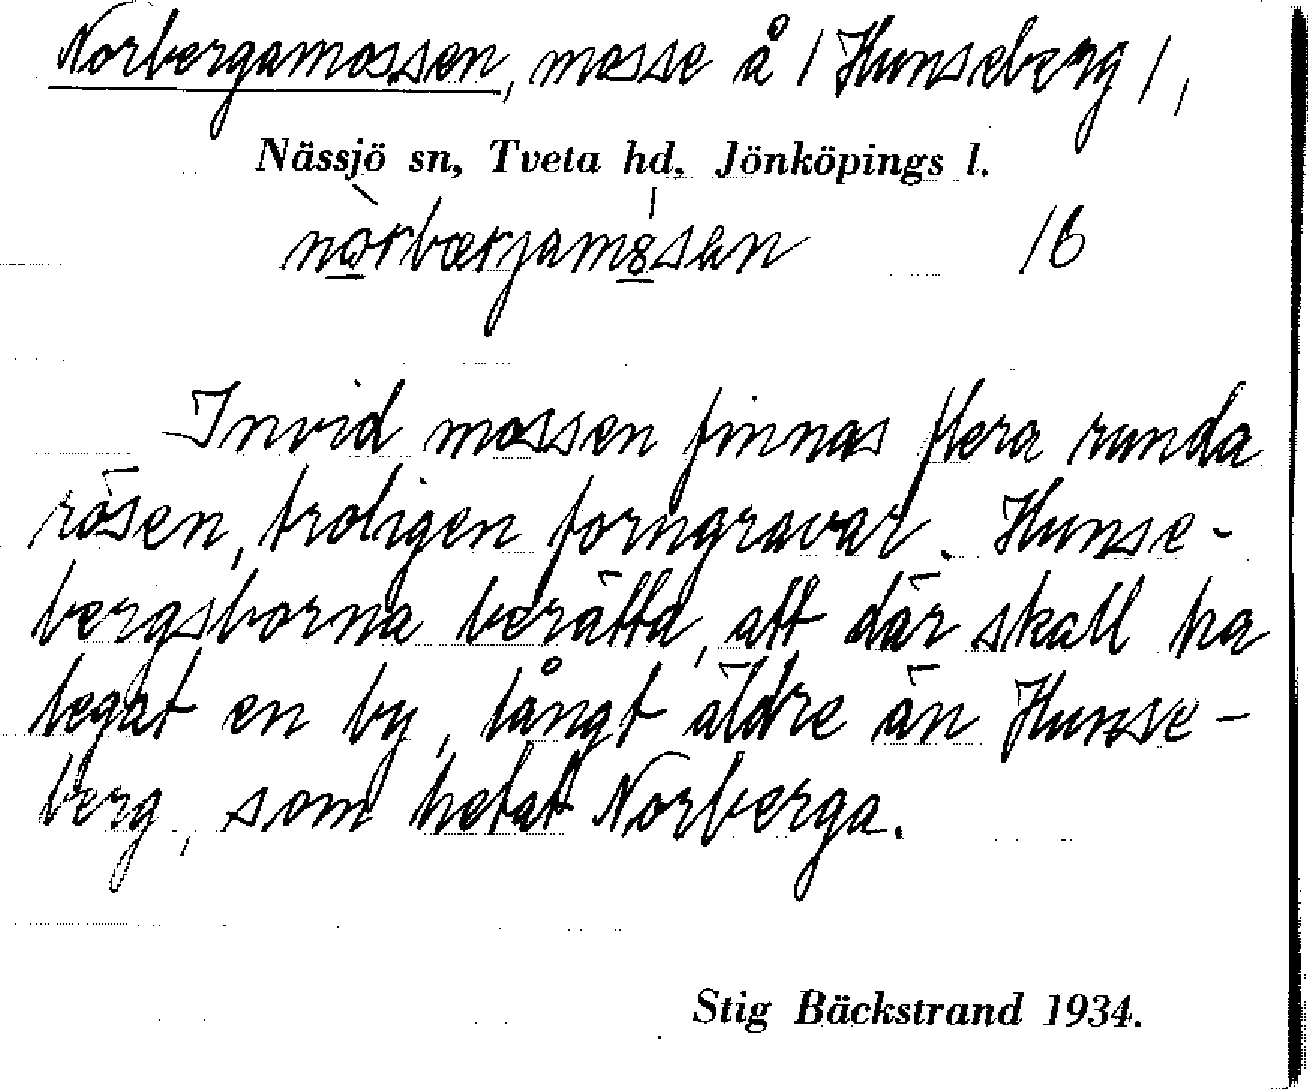 Norbergamossen, mosse å / Hunseberg /,
Nässjö sn, Tveta hd, Jönköpings l.
16
Invid mossen finnas flera runda
rösen, troligen forngravar. Hunse-
bergsborna berätta, att där skall ha
legat en by, långt äldre än Hunse-
berg, som hetat Norberga.
Stig Bäckstrand 1934.